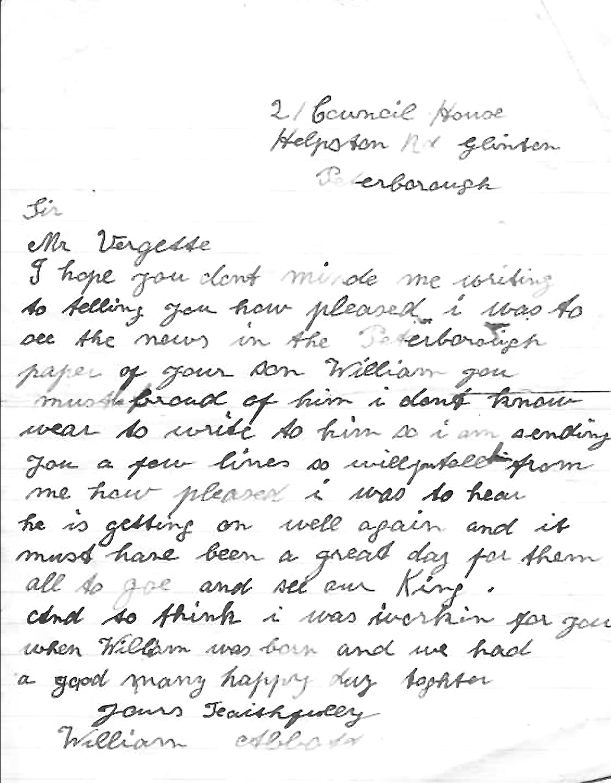 21 Council House
Helpston Rd Glinton
Peterborough
Sir
Mr Vergette
I hope you dont minde me writing
to telling you how pleased i was to
see the news in the Peterborough
paper of your son William you
must proud of him i dont know
wear to write to him so i am sending
you a few lines so will tell from
me how pleased i was to hear
he is getting on well again and it
must have been a great day for them
all to goe and see our King .
And so think i was workin for you
when William was born and we had
a good many happy day toghter
Yours Feaithfully
William Abbott